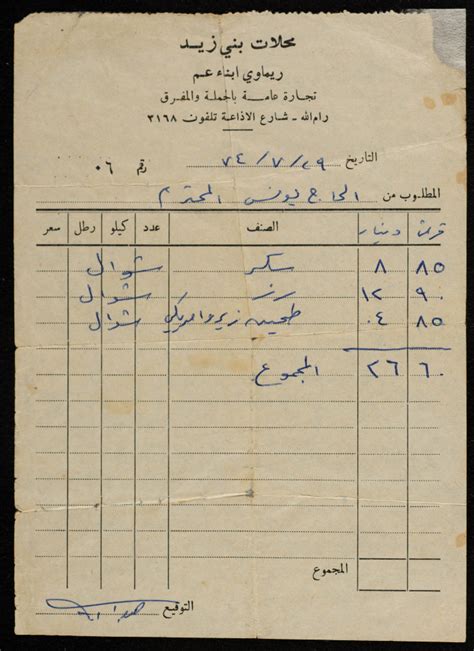 محلات بني زيد
ريماوي ابناء عم
تجارة عامة بالجملة والمفرق
رام الله - شارع الاذاعة تلفون ٢١٦٨
التاريخ ٧٤/٧/٢٩ رقم ٠٦
المطلوب من الحاج يونس المحترم
قرش دينار الصنف عدد كيلو رطل سعر
٨٥ ٨ سكر شوال
٩٠ ١٢ رز شوال
٨٥ ٠٤ طحين زيرو امريكي شوال
٦٠ ٢٦ المجموع
المجموع
التوقيع